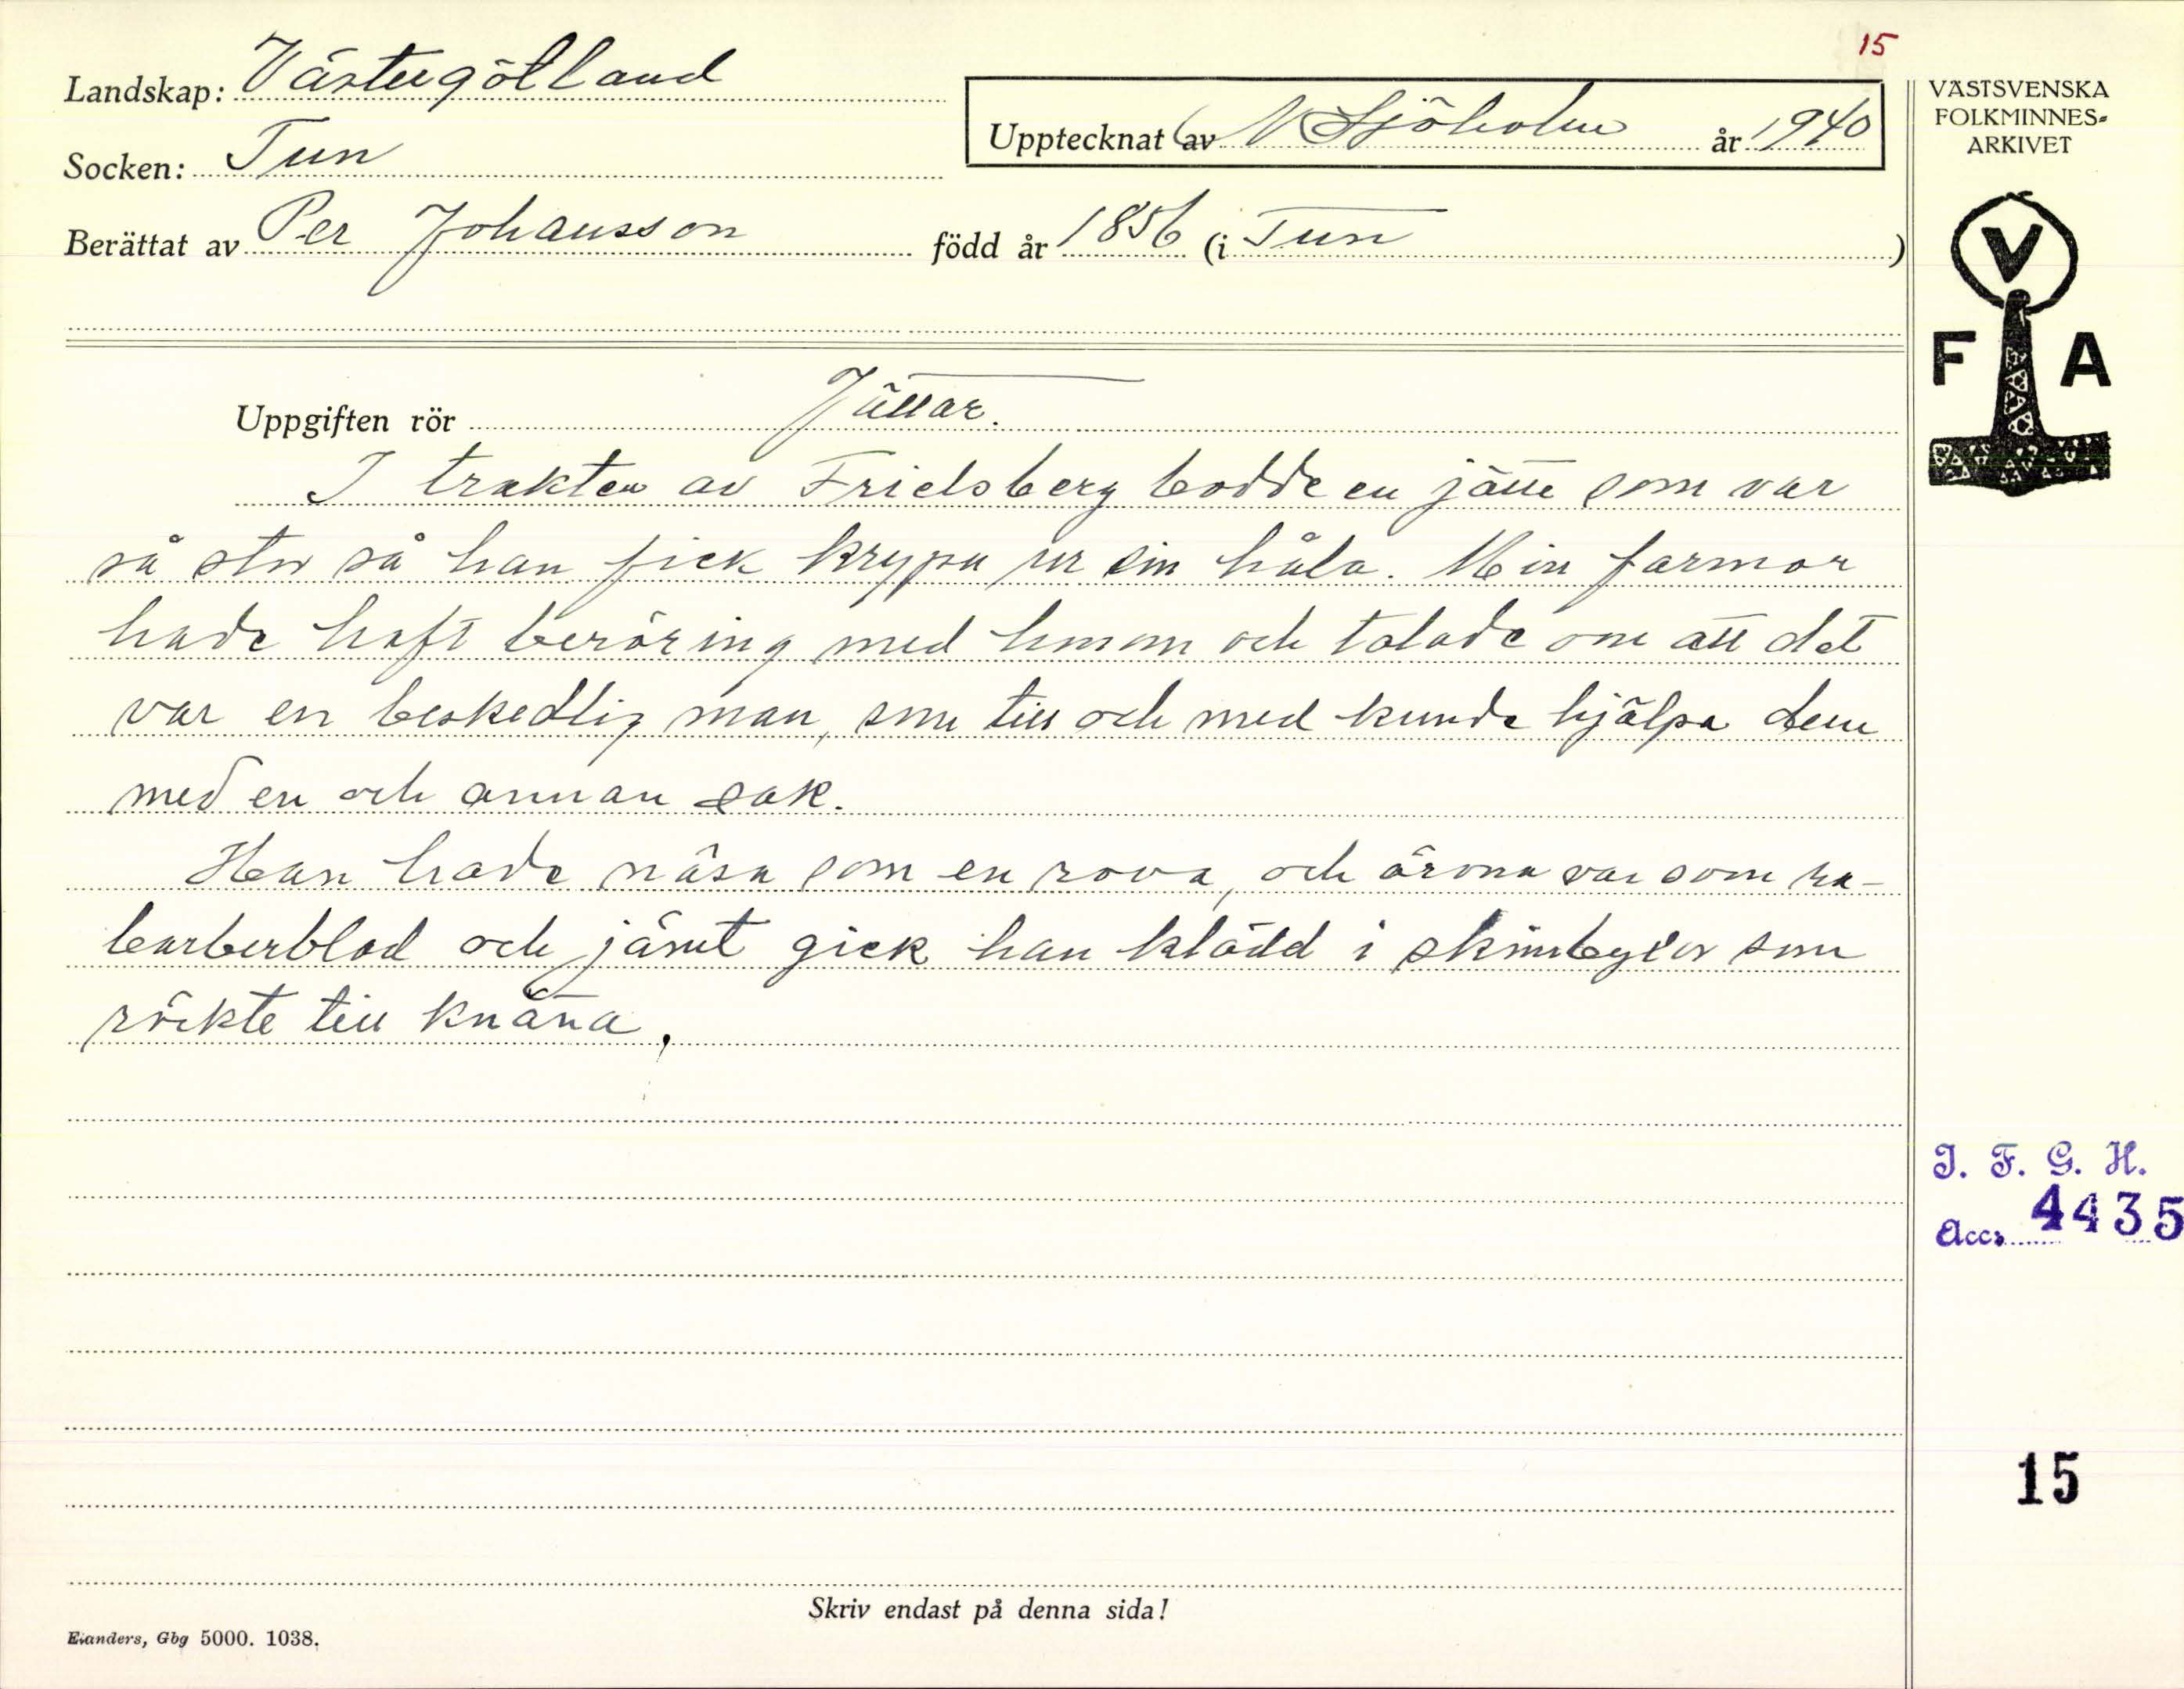 15
Landskap: Västergötland
Upptecknat av N Sjöholm år 1940
Socken: Tun
Berättat av Per Johansson född år 1856 (i Tun )
VÄSTSVENSKA
FOLKMINNES-
ARKIVET
V
F A
Uppgiften rör Jättar.
I trakten av Frielsberg bodde en jätte som var
så stor så han fick krypa ur sin håla. Min farmor
hade haft beröring med honom och talade om att det
var en beskedlig man, som till och med kunde hjälpa dem
med en och annan sak.
Han hade näsa som en rova, och örona var som ra-
barberblad och jämt gick han klädd i skinnbyxor som
räckte till knäna.
I. F. G. H.
Acc. 4435
15
Skriv endast på denna sida!
Elanders, Gbg 5000. 1038.